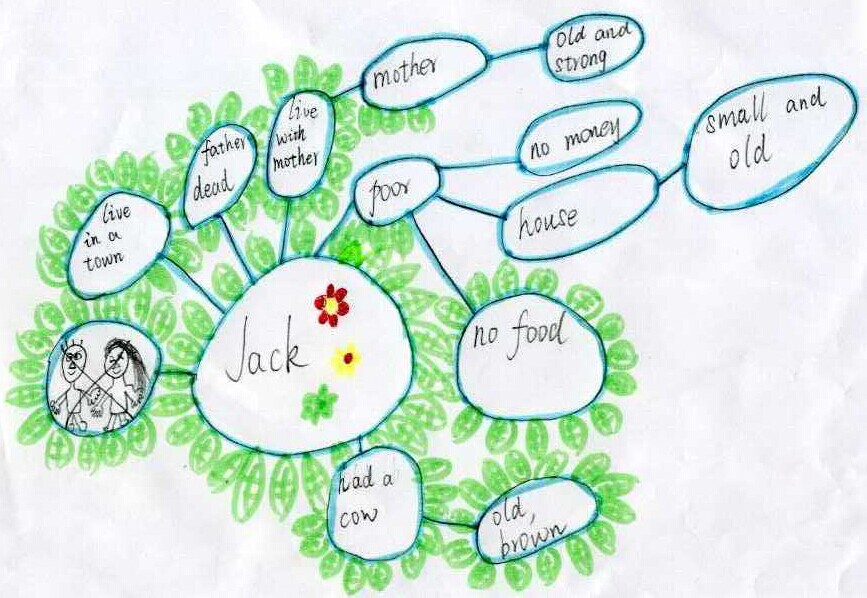 old and
strong
mother
live
with
mother
father
dead
no money
small and
old
poor
live
in a
town
house
Jack
no food
had a
cow
old,
brown